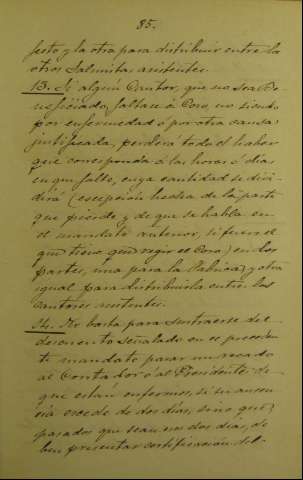 85.
festo y la otra para distribuir entre los
otros Salmistas asistentes.
13. Si algún Cantor, que no sea Be-
neficiado, faltase á Coro, no siendo
por enfermedad ó por otra causa
justificada, perderá todo el haber
que corresponda á las horas ó dias
en que falte, cuya cantidad se divi-
dirá (escepción hecha de la parte
que pierde y de que se habla en
el mandato anterior, si fuera el
que tiene que regir el Coro) en dos
partes, una para la Fabrica, y otra
igual para distribuirla entre los
Cantores asistentes.
14. No basta para sustraerse del
descuento señalado en el preceden-
te mandato pasar un recado
al Contador ó al Presidente de
que están enfermos, si su ausen-
cia escede de dos días, sino que,
pasados que sean esos dos días, de-
ben presentar certificación del